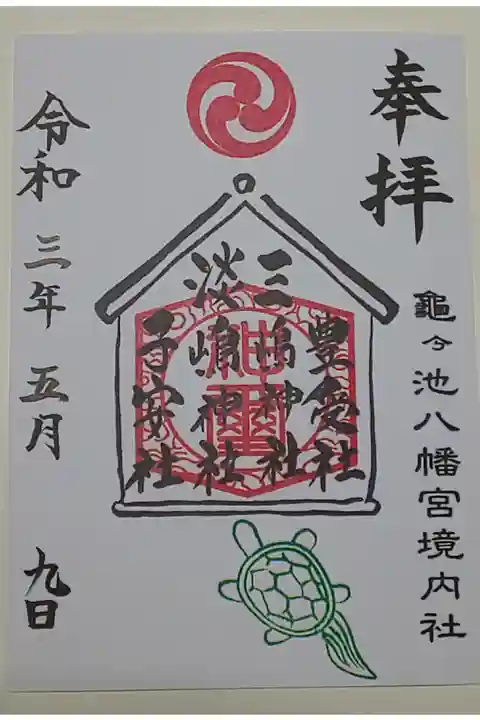 奉拝
龜ヶ池八幡宮境内社
豊受社
三嶋神社
淡嶋神社
子安社
令和三年五月九日